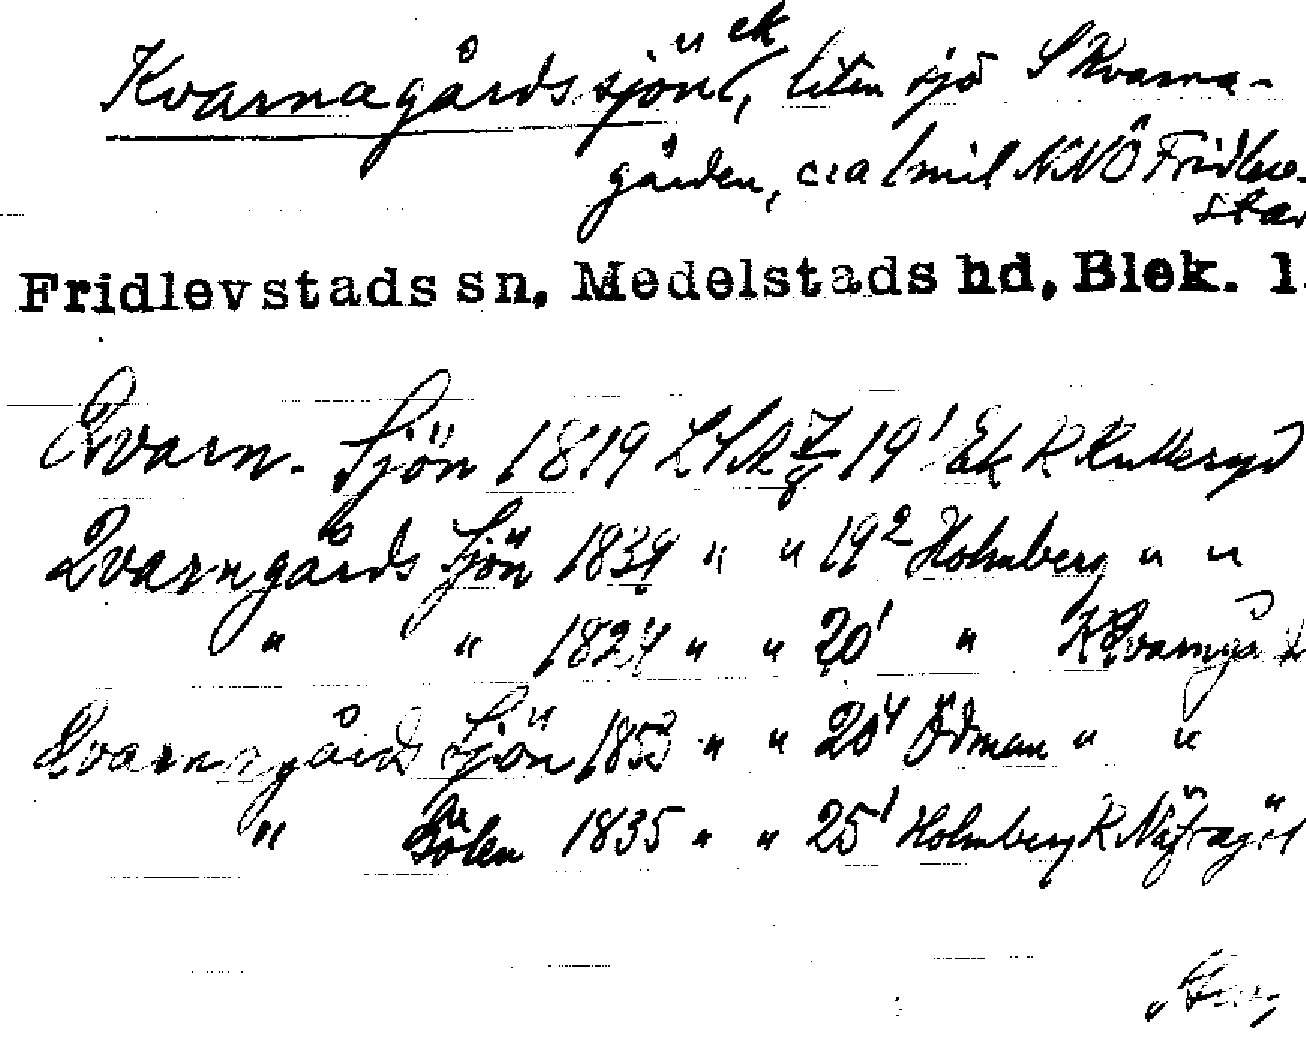 Kvarnagårdssjön, ek liten sjö S Kvarna-
gården, c:a 1 mil NNÖ Fridlev-
stad
Fridlevstads sn. Medelstads hd. Blek. l.
Qvarn- Sjön 1819 LSA 7/8 19¹ Ek R Rulleryd
Qvarngårds Sjön 1839 " " 19² Holmberg " "
" " 1824 " " 20¹ " R Qvarngå
Qvarnagårds Sjön 1853 " " 20⁴ Ödman " "
" Gölen 1835 " " 25¹ Holmberg R